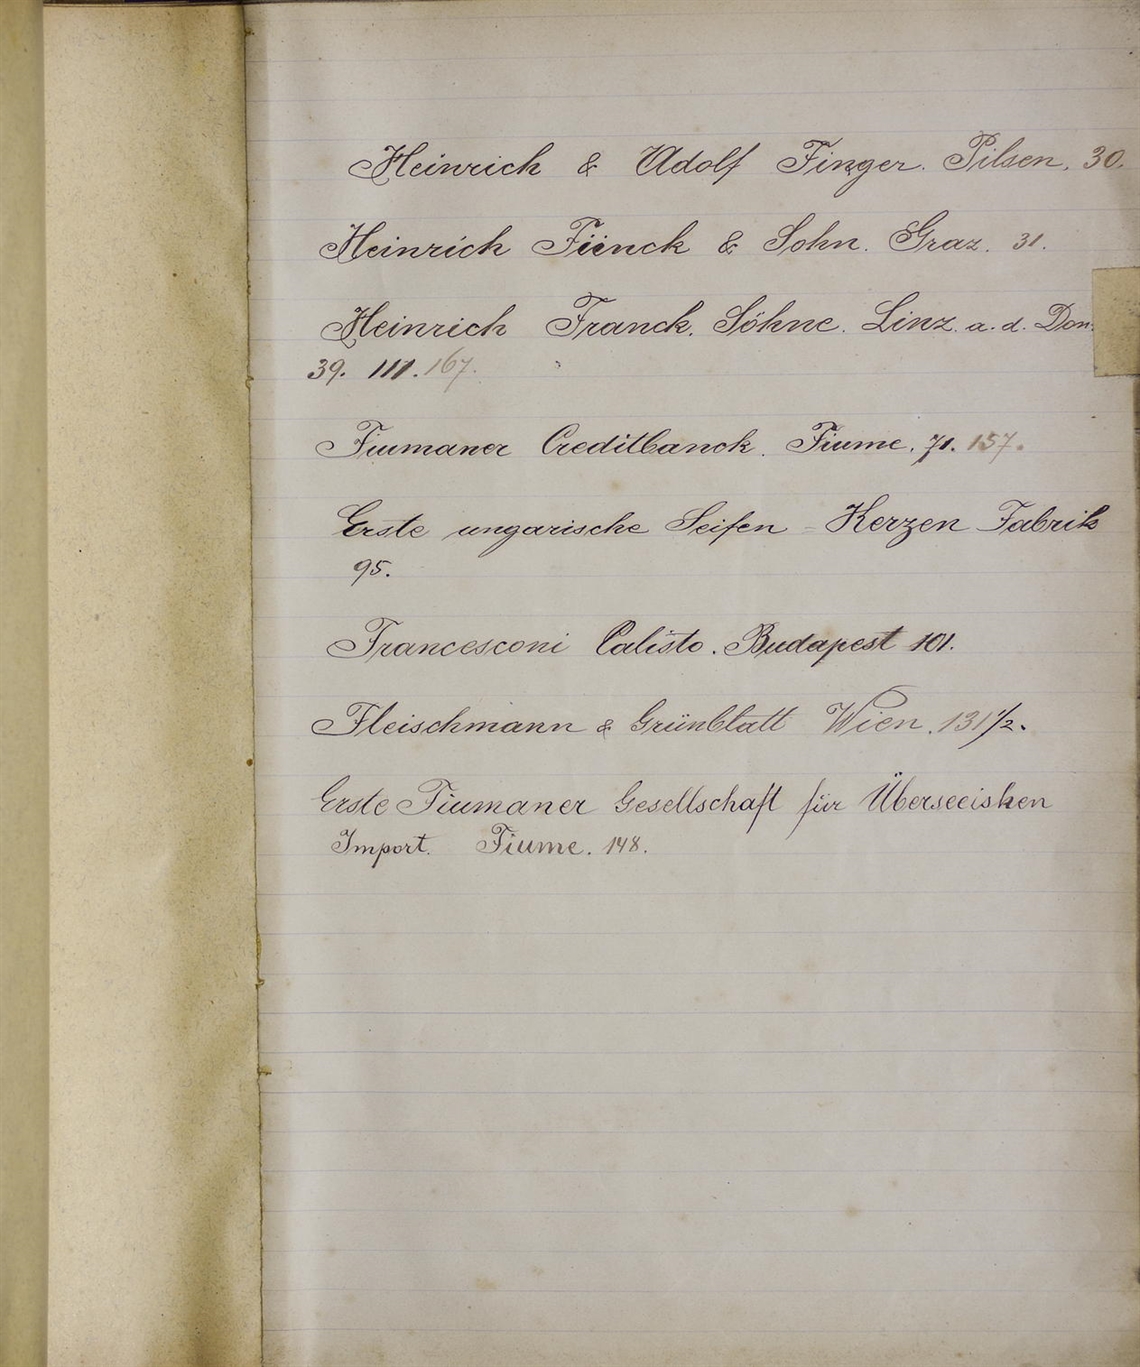 Heinrich & Adolf Finger. Pilsen. 30.
Heinrich Fünck & Sohn. Graz. 31.
Heinrich Franck. Söhne. Linz. a. d. Don.
39. 111. 167.
Fiumaner Creditbanck. Fiume. 71. 157.
Erste ungarische Seifen - Kerzen Fabrik
95.
Francesconi Calisto. Budapest 101.
Fleischmann & Grünblatt Wien. 131 1/2.
Erste Fiumaner Gesellschaft für Überseeisken
Import. Fiume. 148.